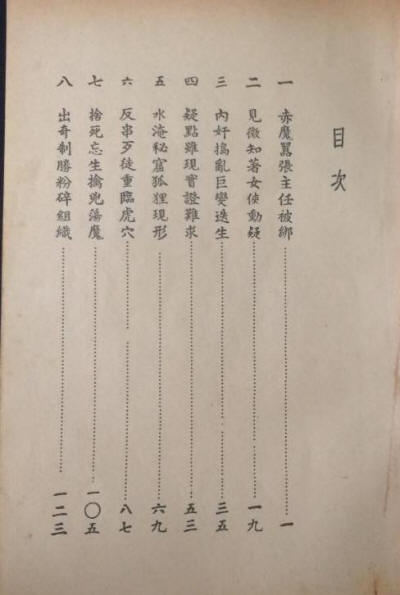 目次
一 赤魔囂張主任被綁 一
二 見微知著女俠動疑 一九
三 內奸搗亂巨變迭生 三五
四 疑點雖現實證難求 五三
五 水淹秘窟狐狸現形 六九
六 反串歹徒重臨虎穴 八七
七 捨死忘生擒兇蕩魔 一〇五
八 出奇制勝粉碎組織 一二三